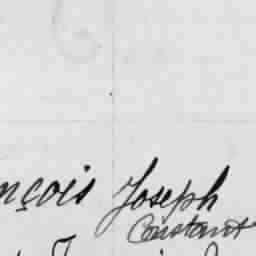 nçois Joseph
Constant